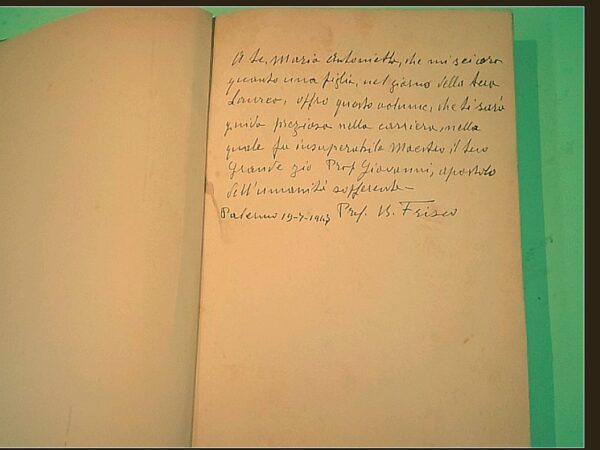 A te, Maria Antonietta, che mi sei cara
quanto una figlia, nel giorno della tua
Laurea, offro questo volume, che ti sarà
guida preziosa nella carriera, nella
quale fu insuperabile Maestro, il tuo
Grande zio Prof Giovanni, apostolo
dell'umanità sofferente -
Palermo 19-7-1947 Prof. B. Frisco